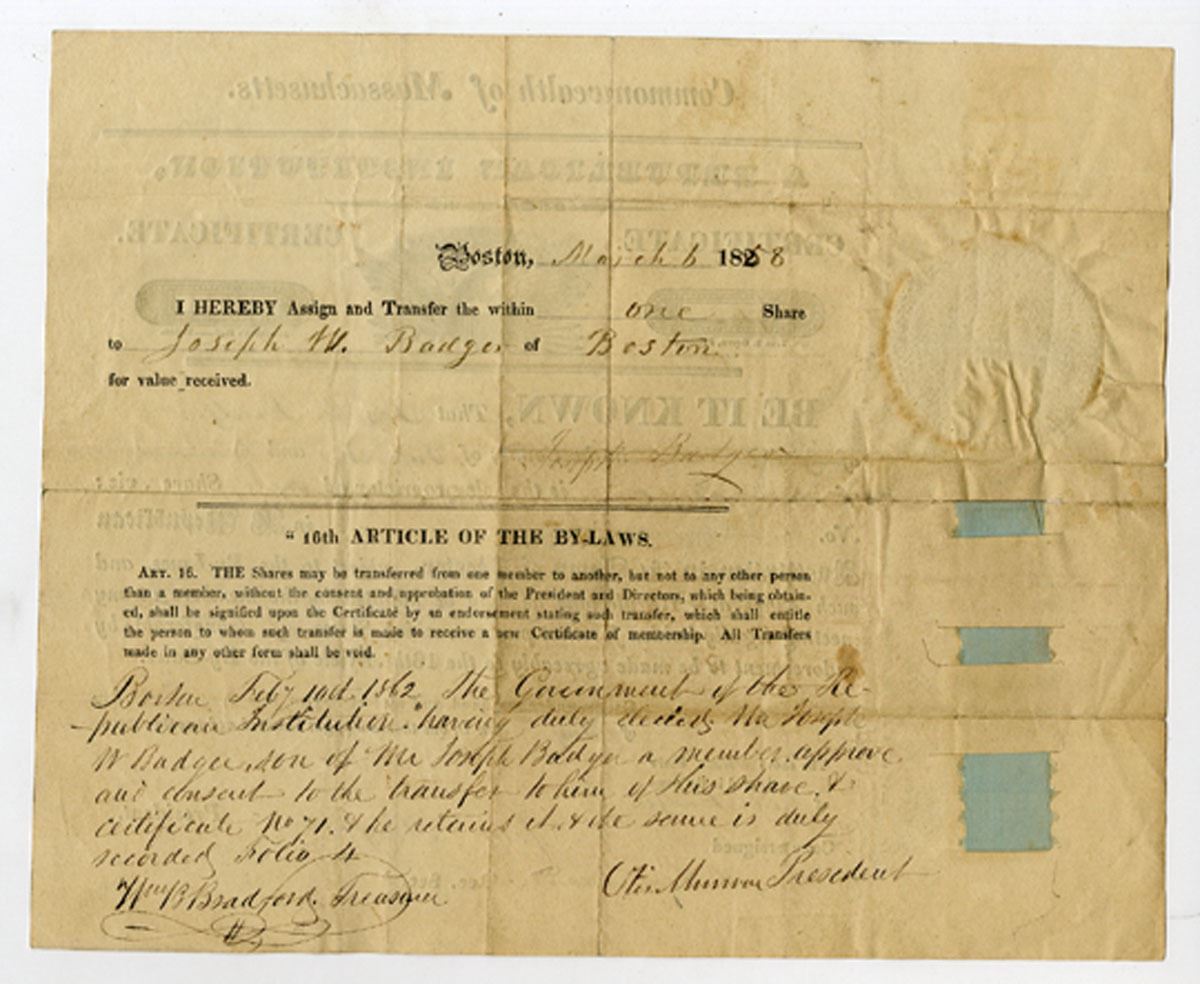 Boston, March 6 1858
I HEREBY Assign and Transfer the within one Share
to Joseph W. Badger of Boston
for value received.
Joseph Badger
"16th ARTICLE OF THE BY-LAWS.
ART. 16. THE Shares may be transferred from one member to another, but not to any other person
than a member, without the consent and approbation of the President and Directors, which being obtain-
ed, shall be signified upon the Certificate by an endorsement stating such transfer, which shall entitle
the person to whom such transfer is made to receive a new Certificate of membership. All Transfers
made in any other form shall be void.
Boston Feby 1862 The Government of the Re-
-publican Institution "having duly elected, Mr Joseph
W Badger, son of Mr Joseph Badger a member, approve
and consent to the transfer to him of this share, &
certificate No 71. & he retains it. & the same is duly
recorded, Folio 4
Wm B Bradford. Treasurer
Otis Munroe President
Commonwealth of Massachusetts.
A REPUBLICAN INSTITUTION,
CERTIFICATE CERTIFICATE.
BE IT KNOWN, That